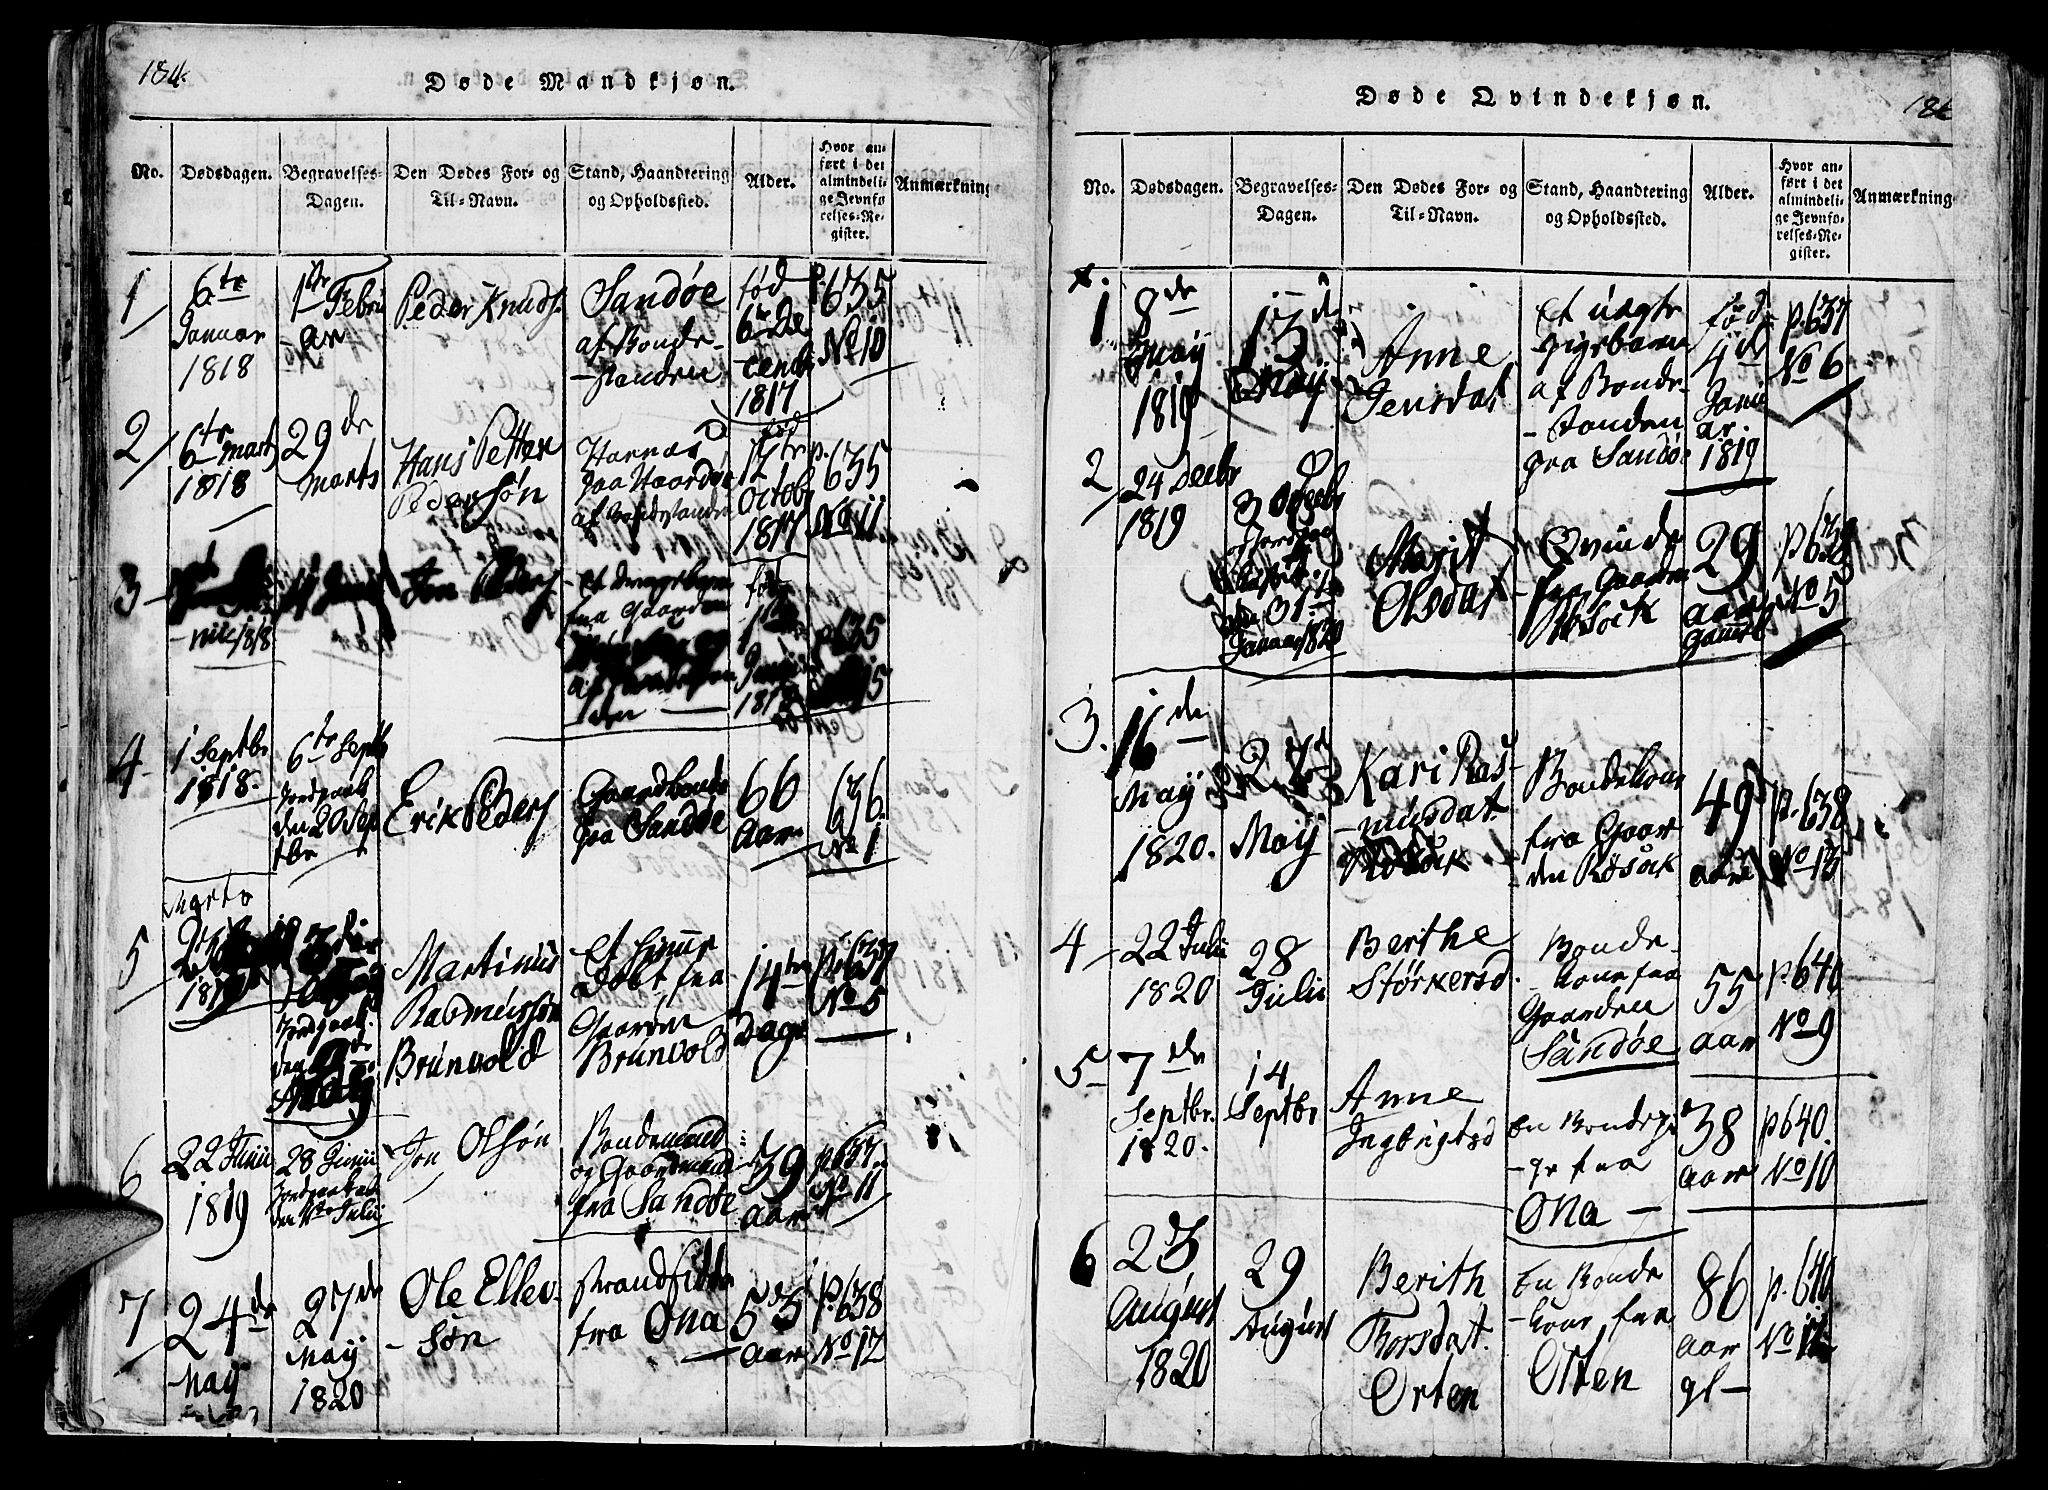 184.
Døde Mandkjøn.
No.
Dødsdagen.
Begravelses-
Dagen.
Den Dødes For- og
Til-Navn.
Stand, Haandtering
og Opholdssted.
Alder.
Hvor an-
ført i det
almindeli-
ge Jevnfø-
relses-Re-
gister.
Anmærkning
1
6te
Januar
1818
1ste Febru
-ar
Peder Knuds.
Sandøe
af Bonde-
-standen
fød
6te De
-cemb.
1817
p. 635
No 10
2
6te Marts
1818
29de
Marts
Hans Petter
Pedersøn
Harnæs
paa Haarde
fød
12te
Octob
1817
p.
635
No 11
3
1818
Jon Peders
et drengebarn
fra Gaarden
den
fød
1ste
Junii
1818
p 635
15
4
1 Septbr
1818.
6te Septb
Jordpaak
den 20 Sep
tbr
Erik Peders
Gaardbonde
fra Sandøe
66
Aar
636.
No 1
5
Marts
Martinus
Rasmussøn
Brunvold
et hjemme
døbt fra
Gaarden
Brunvold
14ten
Dage
p. 637
No 5
6
22 Junii
1819
28 Junii
Jordpaakast
den 11te Julii
Jon Olsøn
Bondemand
og Gaardmand
fra Sandøe
39
aar
p. 637
No 11
7
24de
May
27de
May
1820
Ole Ellev-
-søn
Strandsidder
fra Ona
53
aar
p. 638
No 12
Døde Qvindekjøn.
186
No.
Dødsdagen.
Begravelses-
Dagen.
Den Dødes For- og
Til-Navn.
Stand, Haandtering
og Opholdssted.
Alder.
Hvor an-
ført i det
almindeli-
ge Jevnfø-
relses-Re-
gister.
Anmærkning
1
8de
May
1819
13de
May
Anne
Jensdat
et uægte
pigebarn
af Bonde-
-standen
fra Sandøe
fød
4de
Janu
ar.
1819
p. 637
No 6
2
24 Decbr
1819
30 Decbr
Jordpaa
den 31te
Januar 1820
Marit
Olsdat
Qvinde
fra Gaarden
Røsok
29
aar
gammel
p. 639
No 5
3.
16de
May
1820.
27de
May
Kari Ras-
-musdat.
Røsok
Bondekone
fra Gaar
-den Røsok
49
aar
p. 638
No 13
4
22 Julii
1820
28
Julii
Berthe
Størkersd.
Bonde-
-kone fra
Gaarden
Sandøe
55
aar
p. 640
No 9
5
7de
Septbr.
1820.
14
Septbr
Anne
Ingbrigtsd
En Bondepi
-ge fra
Ona
38
aar
p 640.
No 10
6
23
August
1820
29
August
Berith
Thorsdat.
Orten
En Bonde
-kone fra
Orten
86
aar
gl
p. 640
No 12